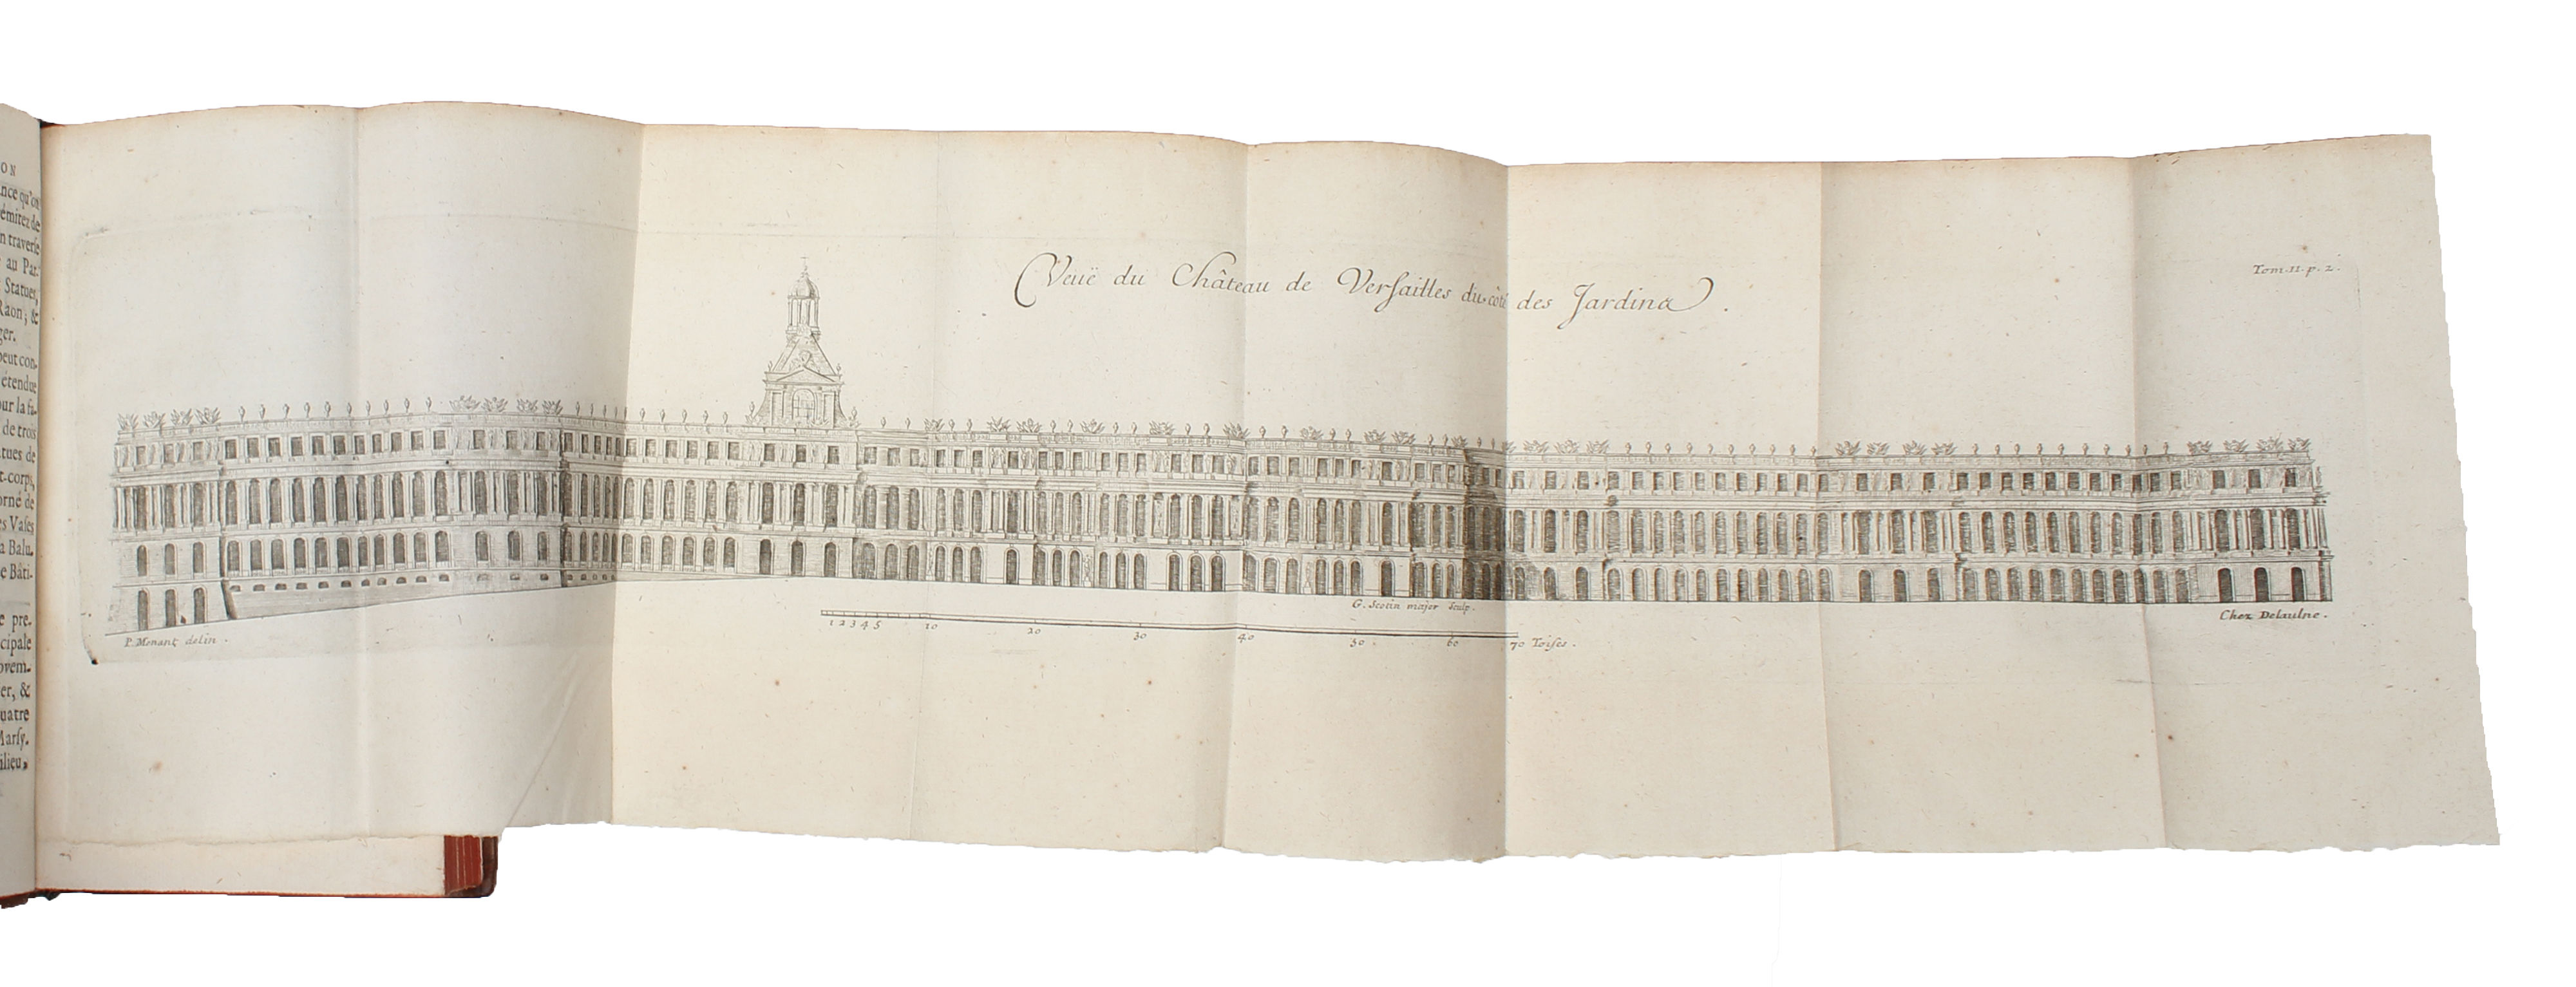 ON
nce qu'on
émitez de
n traverse
au Par-
Statues,
Raon, &
ger.
peut con-
étendue
our la fa-
de trois
tues de
t-corps,
orné de
es Vases
a Balu.
e Bâti-
e pre-
cipale
ovem-
er, &
uatre
Marsy.
ilieu,
Veuë du Château de Versailles du côté des Jardins.
Tom. II. p. 2.
G. Scotin major Sculp.
Chez Delaulne.
P. Menant delin.
1 2 3 4 5 10 20 30 40 50 60 70 Toises.